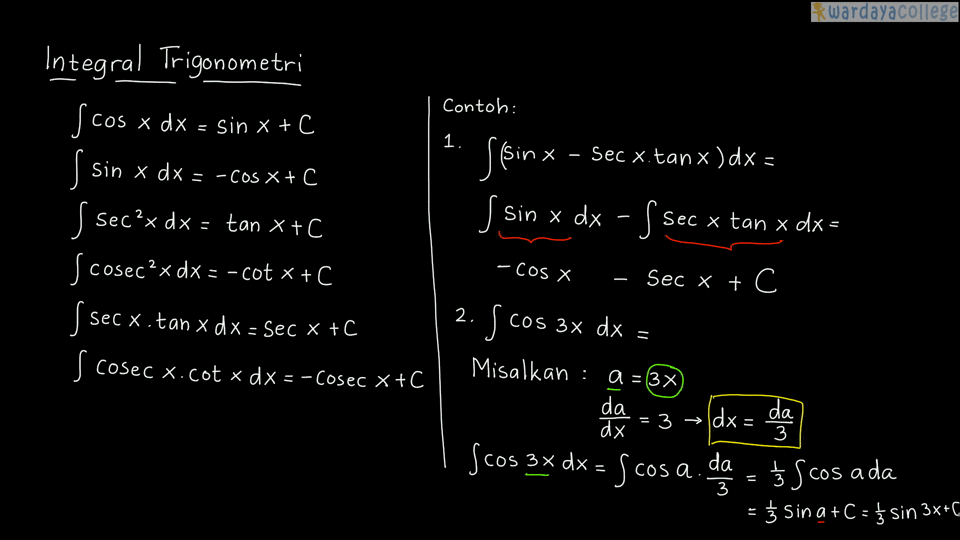 wardayacollege
Integral Trigonometri
∫ cos x dx = sin x + C
∫ sin x dx = -cos x + C
∫ sec²x dx = tan x + C
∫ cosec²x dx = -cot x + C
∫ sec x . tan x dx = sec x + C
∫ cosec x . cot x dx = -cosec x + C
Contoh:
1. ∫(sin x - sec x . tan x) dx =
∫ sin x dx - ∫ sec x tan x dx =
-cos x - sec x + C
2. ∫ cos 3x dx =
Misalkan : a = 3x
da/dx = 3 → dx = da/3
∫ cos 3x dx = ∫ cos a . da/3 = 1/3 ∫ cos a da
= 1/3 sin a + C = 1/3 sin 3x + C